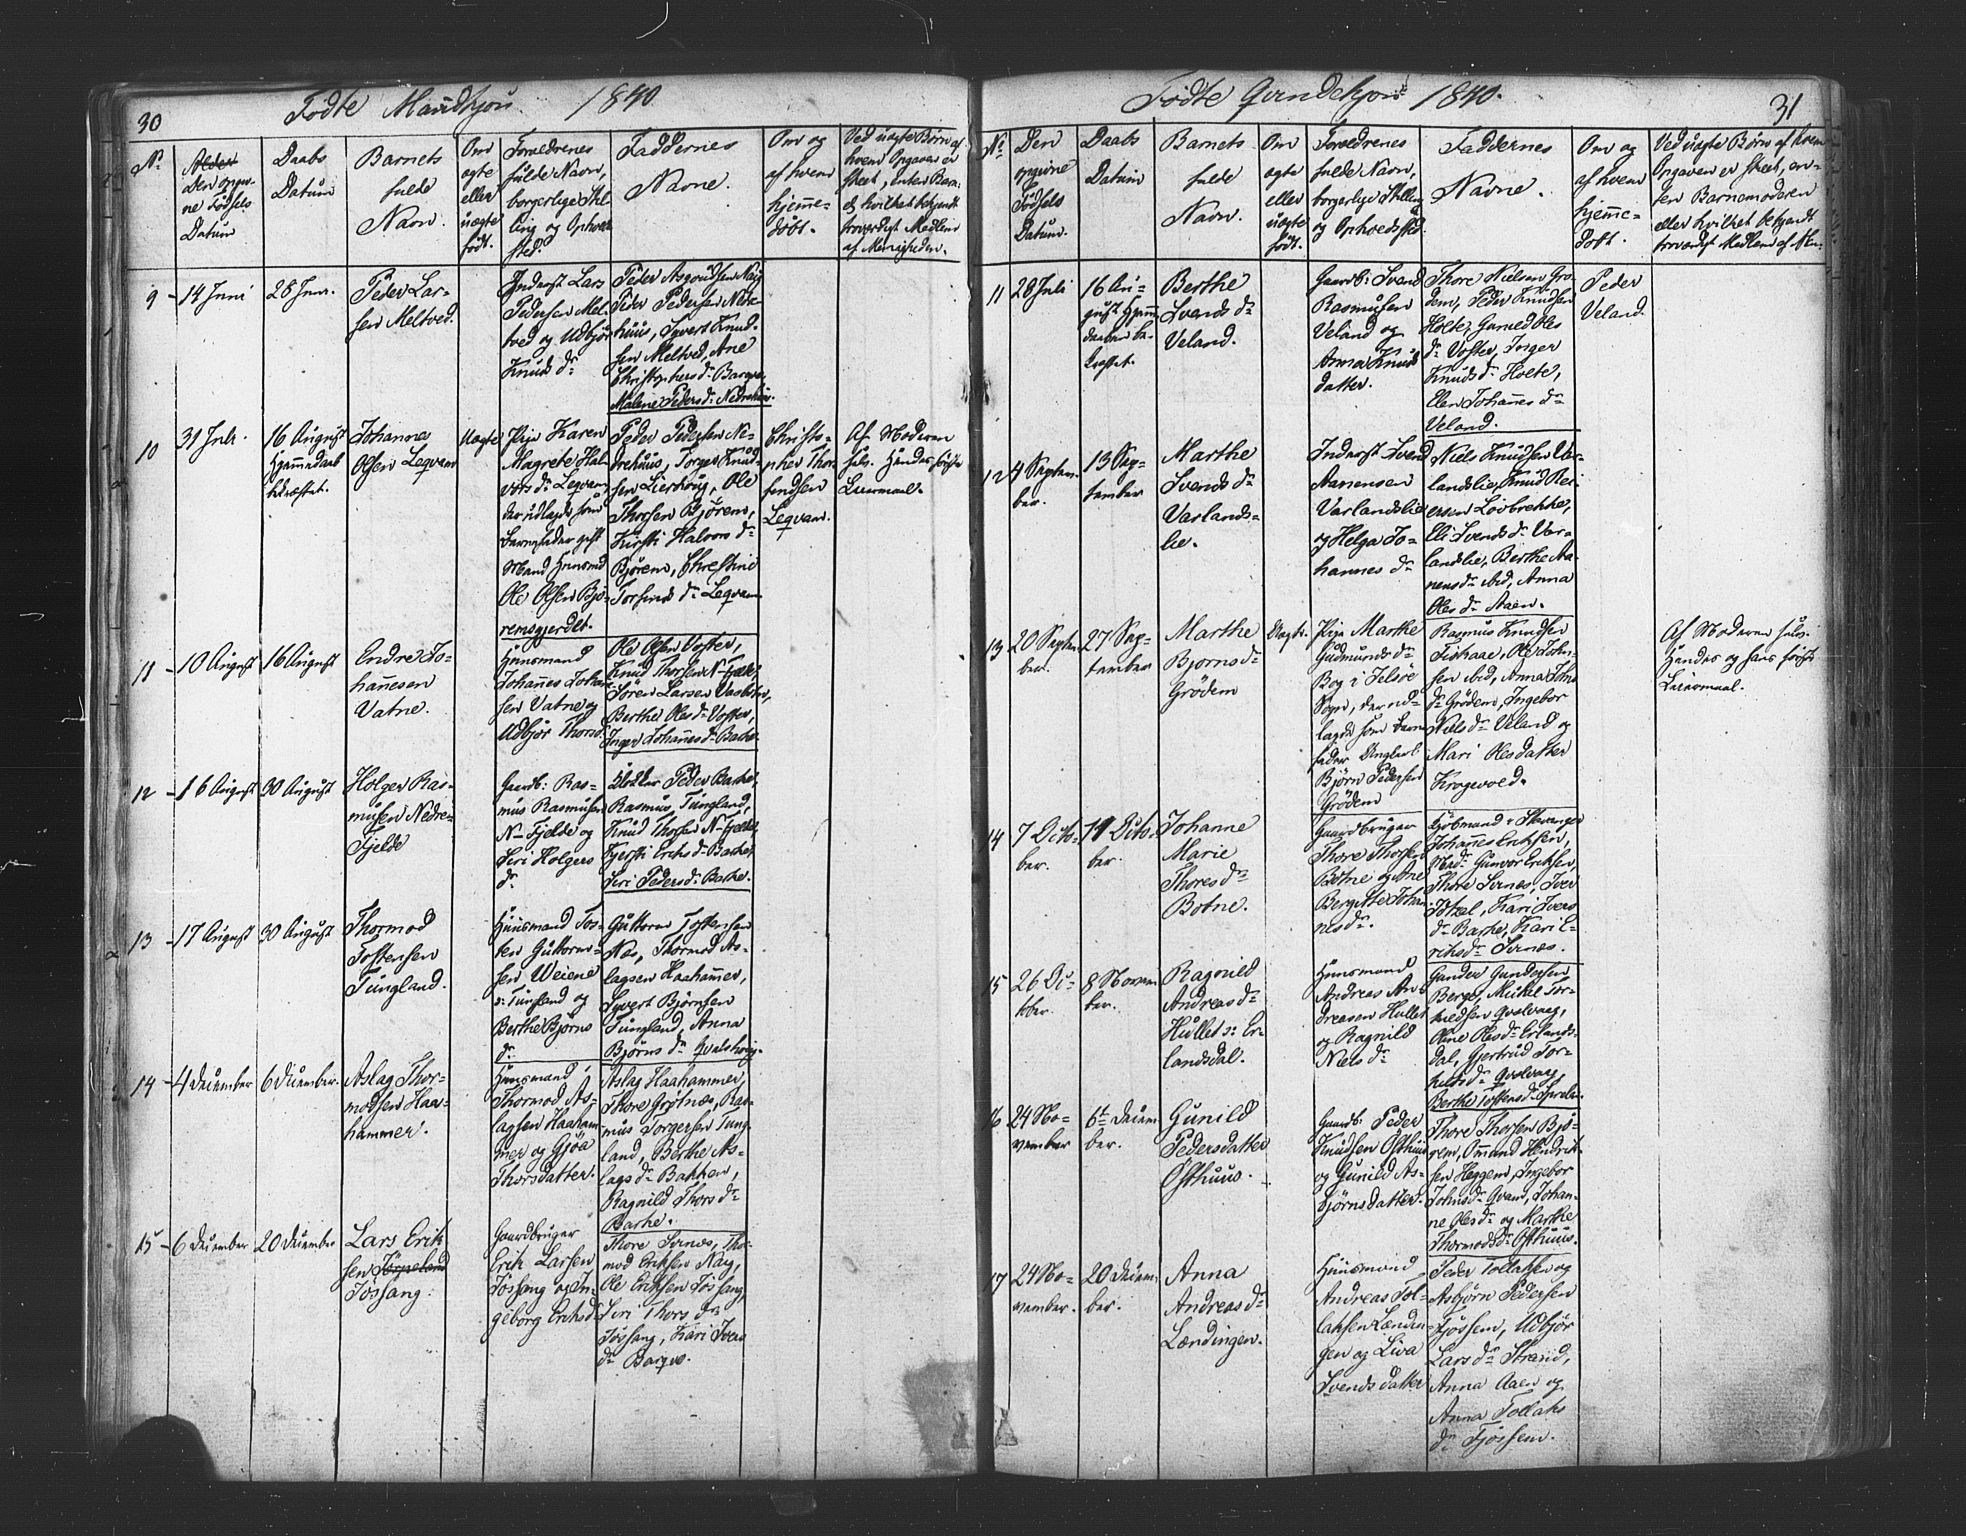 30
Fødte Mandkjøn 1840
No
Alder
Den opgivne Fødsels
Datum
Daabs
Datum
Barnets
fulde
Navn.
Om
ægte
eller
uægte
født.
Forældrenes
fulde Navn,
borgerlige Stilling og Opholdssted.
Faddernes
Navne.
Om og
af hvem
hjemmedøbt.
Ved uægte Børn af
hvem Opgaven er
skeet, enten Barnemoderen
eller hvilket bekjendt
troværdigt Medlem
af Menigheden.
9
14 Juni
28 Juni
Peder Larsen
Meltved.
Inderst Lars
Pedersen Meltved
og Udbjør
Knuds dr
Peder Asgoudsen Naig
Peder Pedersen Nedrehuus,
Syvert Knudsen
Meltved, Ane
Christophers dr Barqve
Malene Peders dr Nedrehuus.
10
31 Juli.
16 August
Hjemmedaab
bekræftet.
Johannes
Olsen Leqvam
Uægte
Pige Karen
Magrete Halvors
dr Leqvam
der udlagde som
Barnefader gift
Mand Huusmd
Ole Olsen Bjøremsgjerdet.
Peder Pedersen Nedrehuus,
Torger Knudsen
Lierhoug, Ole
Thorsen Bjørem,
Kirsti Halvors dr
Bjørem, Christine
Torfinds dr Leqvam
Christopher
Thorfindsen
Leqvam.
Af Moderen
selv. Hendes første
Leiermaal.
11
10 August
16 August
Endre Johannesen
Vatne.
Huusmand
Johannes Johannesen
Vatne og
Udbjør Thorsdr
Ole Olsen Voster,
Knud Thorsen N. Fjelde,
Søren Larsen Vasbotn,
Berthe Oles dr Voster,
Inger Johannes dr Barke.
12
16 August
30 August
Holger Rasmusen
Nedre-
Fjelde
Gaardb: Rasmus
Rasmusen
N. Fjelde og
Siri Holgers
dr
Klokker Peder Barke,
Rasmus Tungland,
Knud Thorsen N. Fjelde,
Kjersti Eriks dr Barke,
Siri Peders dr Barke.
13
17 August
30 August
Thormod
Tostensen
Tungland.
Huusmand Tosten
Guttormsen
Weiene
Tungland og
Berthe Bjørns
dr
Guttorm Tostensen
Næs, Thormod Aslagsen
Haahammer,
Syvert Bjørnsen
Tungland, Anna
Bjørns dr Qvalshoug.
14
4 December
6 December.
Aslag Thormodsen
Haahammer.
Huusmand
Thormod Aslagsen
Haahammer
og Gjøa
Thorsdatter.
Aslag Haahammer,
Thore Grøtnæs, Rasmus
Torgersen Tungland,
Berthe Aslags
dr Bakken,
Ragnild Thors dr
Barke.
15
6 December
20 December
Lars Eriksen
Tørpeland
Jøssang.
Gaardbruger
Erik Larsen
Jøssang og Ingeborg
Eriksd
Thore Sernæs, Thormod
Eriksen Naig,
Ole Eriksen Jøssang,
Siri Thors dr
Jøssang, Kari Ivers
dr Barqve.
Fødte Qvindekjøn 1840.
31
No
Den
opgivne
Fødsels
Datum.
Daabs
Datum
Barnets
fulde
Navn.
Om
ægte
eller
uægte
født.
Forældrenes
fulde Navn,
borgerlige Stilling
og Opholdssted
Faddernes
Navne.
Om og
af hvem
hjemmedøbt.
Ved uægte Børn af hvem
Opgaven er skeet, enten
Barnemoderen
eller hvilket bekjendt
troværdigt Medlem af Men.
11
28 Juli
16 August
Hjemmedaaben
bekræftet.
Berthe
Svends dr
Veland.
Gaardb: Svend
Rasmusen
Veland og
Anna Knudsdatter.
Thore Nielsen Grødem,
Peder Knudsen
Holte, Gunild Oles
dr Voster, Inger
Knuds dr Holte,
Elen Johannes dr
Veland.
Peder
Veland.
12
4 September.
13 September
Marthe
Svends dr
Varlandslie.
Inderst Svend
Aanensen
Varlandslie
og Helga Johannes
dr
Niels Knudsen Varlandslie,
Knud Reiersen
Løvbrekke,
Eli Svends dr Varlandslie,
Berthe Aanens
dr ibid, Anna
Oles dr Aaen.
13
20 September.
27 September
Marthe
Bjørns dr
Grødem
Uægte.
Pige Marthe
Gudmunds dr
Bog i Jelsøe
Sogn, der udlagde
som Barnefader
Ungkarl
Bjørn Pedersen
Grødem
Rasmus Knudsen
Fiskaae, Ole Johnsen
ibid, Anna Johns
dr Grødem, Ingebor
Niels dr Veland og
Mari Olesdatter
Krogevold.
Af Moderen selv.
Hendes og hans første
Leiermaal.
14
7 October.
11 October.
Johanne
Marie
Thores dr
Botne.
Gaardbruger
Thore Thorsen
Botne og Ane
Bergitte Johannesdr.
Kjøbmand i Stavanger
Johannes Eriksen,
Mad. Gunvor Eriksen,
Thore Sernæs, Iver
Jøtzel, Kari Ivers
dr Barke, Kari Eriks
dr Sernæs.
15
26 October.
8 November.
Ragnild
Andreas dr
Hullet: Erlandsdal.
Huusmand
Andreas Andreasen
Hullet
og Ragnild
Niels dr
Gunder Gundersen
Berge, Mikkel Torkildsen
Qvalvaag,
Oline Oles dr Erlandsdal,
Gjertrud Torkilds
dr Qvalvaag,
Berthe Tostens dr
16
24 November
6te December.
Gunild
Pedersdatter
Østhuus.
Gaardb: Peder
Knudsen Østhuus
og Gunild Asbjørnsdatter.
Thore Thorsen Bjørem,
Ommund Hendriksen
Heggem, Ingebor
Johnsdr Qvam, Johanne
Oles dr og Marthe
Thormodsdr Østhuus.
17
24 November.
20 December.
Anna
Andreas dr
Lændingen.
Huusmand
Andreas Tollaksen
Lændingen
og Liva
Svendsdatter
Peder Tollaksen og
Asbjørn Pedersen
Fjøssem, Udbjør
Lars dr Strand,
Anna Aaen og
Anna Tollaks
dr Fjøssem.